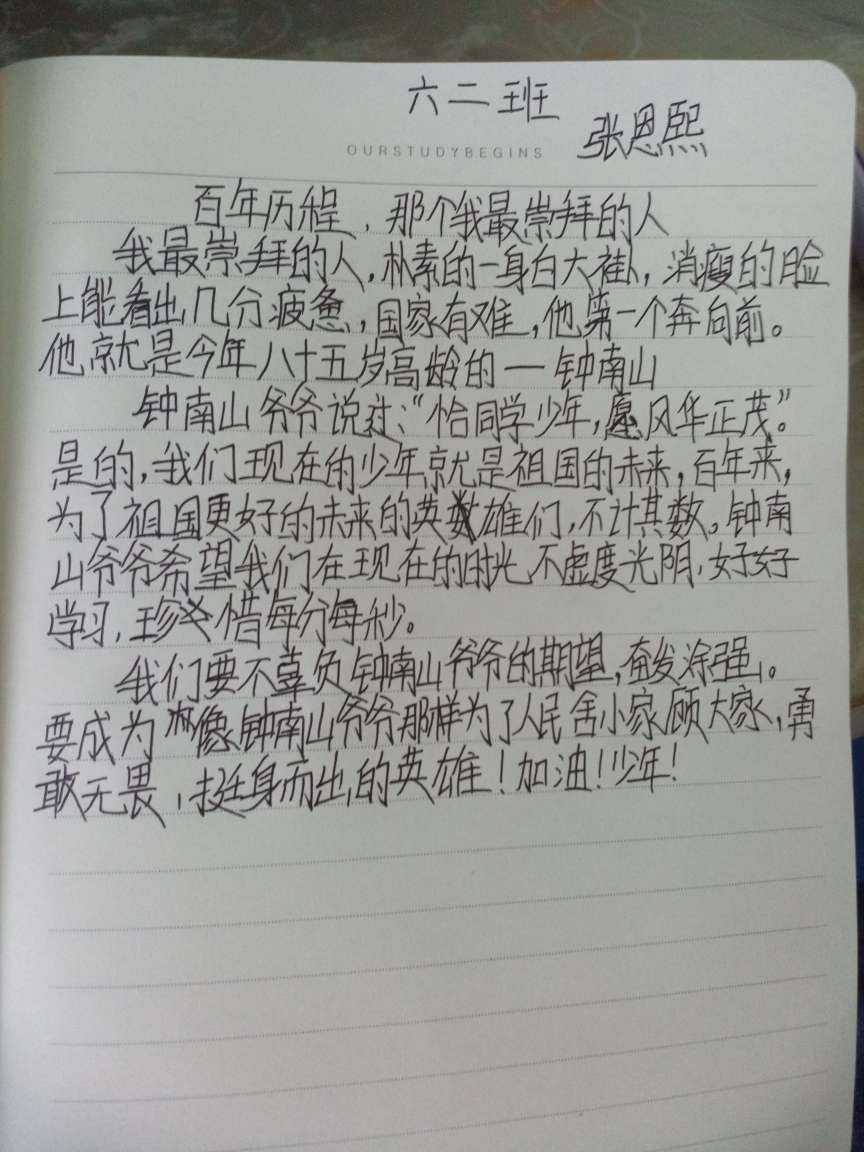 六二班
OURSTUDYBEGINS 张恩熙
百年历程，那个我最崇拜的人
我最崇拜的人，朴素的一身白大褂，消瘦的脸
上能看出几分疲惫，国家有难，他第一个奔向前。
他就是今年八十五岁高龄的一钟南山
钟南山爷爷说过：“恰同学少年，愿风华正茂”。
是的，我们现在的少年就是祖国的未来，百年来，
为了祖国更好的未来的英雄们，不计其数。钟南
山爷爷希望我们在现在的时光不虚度光阴，好好
学习，珍惜每分每秒。
我们要不辜负钟南山爷爷的期望，奋发涂强。
要成为像钟南山爷爷那样为了人民舍小家顾大家，勇
敢无畏，挺身而出的英雄！加油！少年！